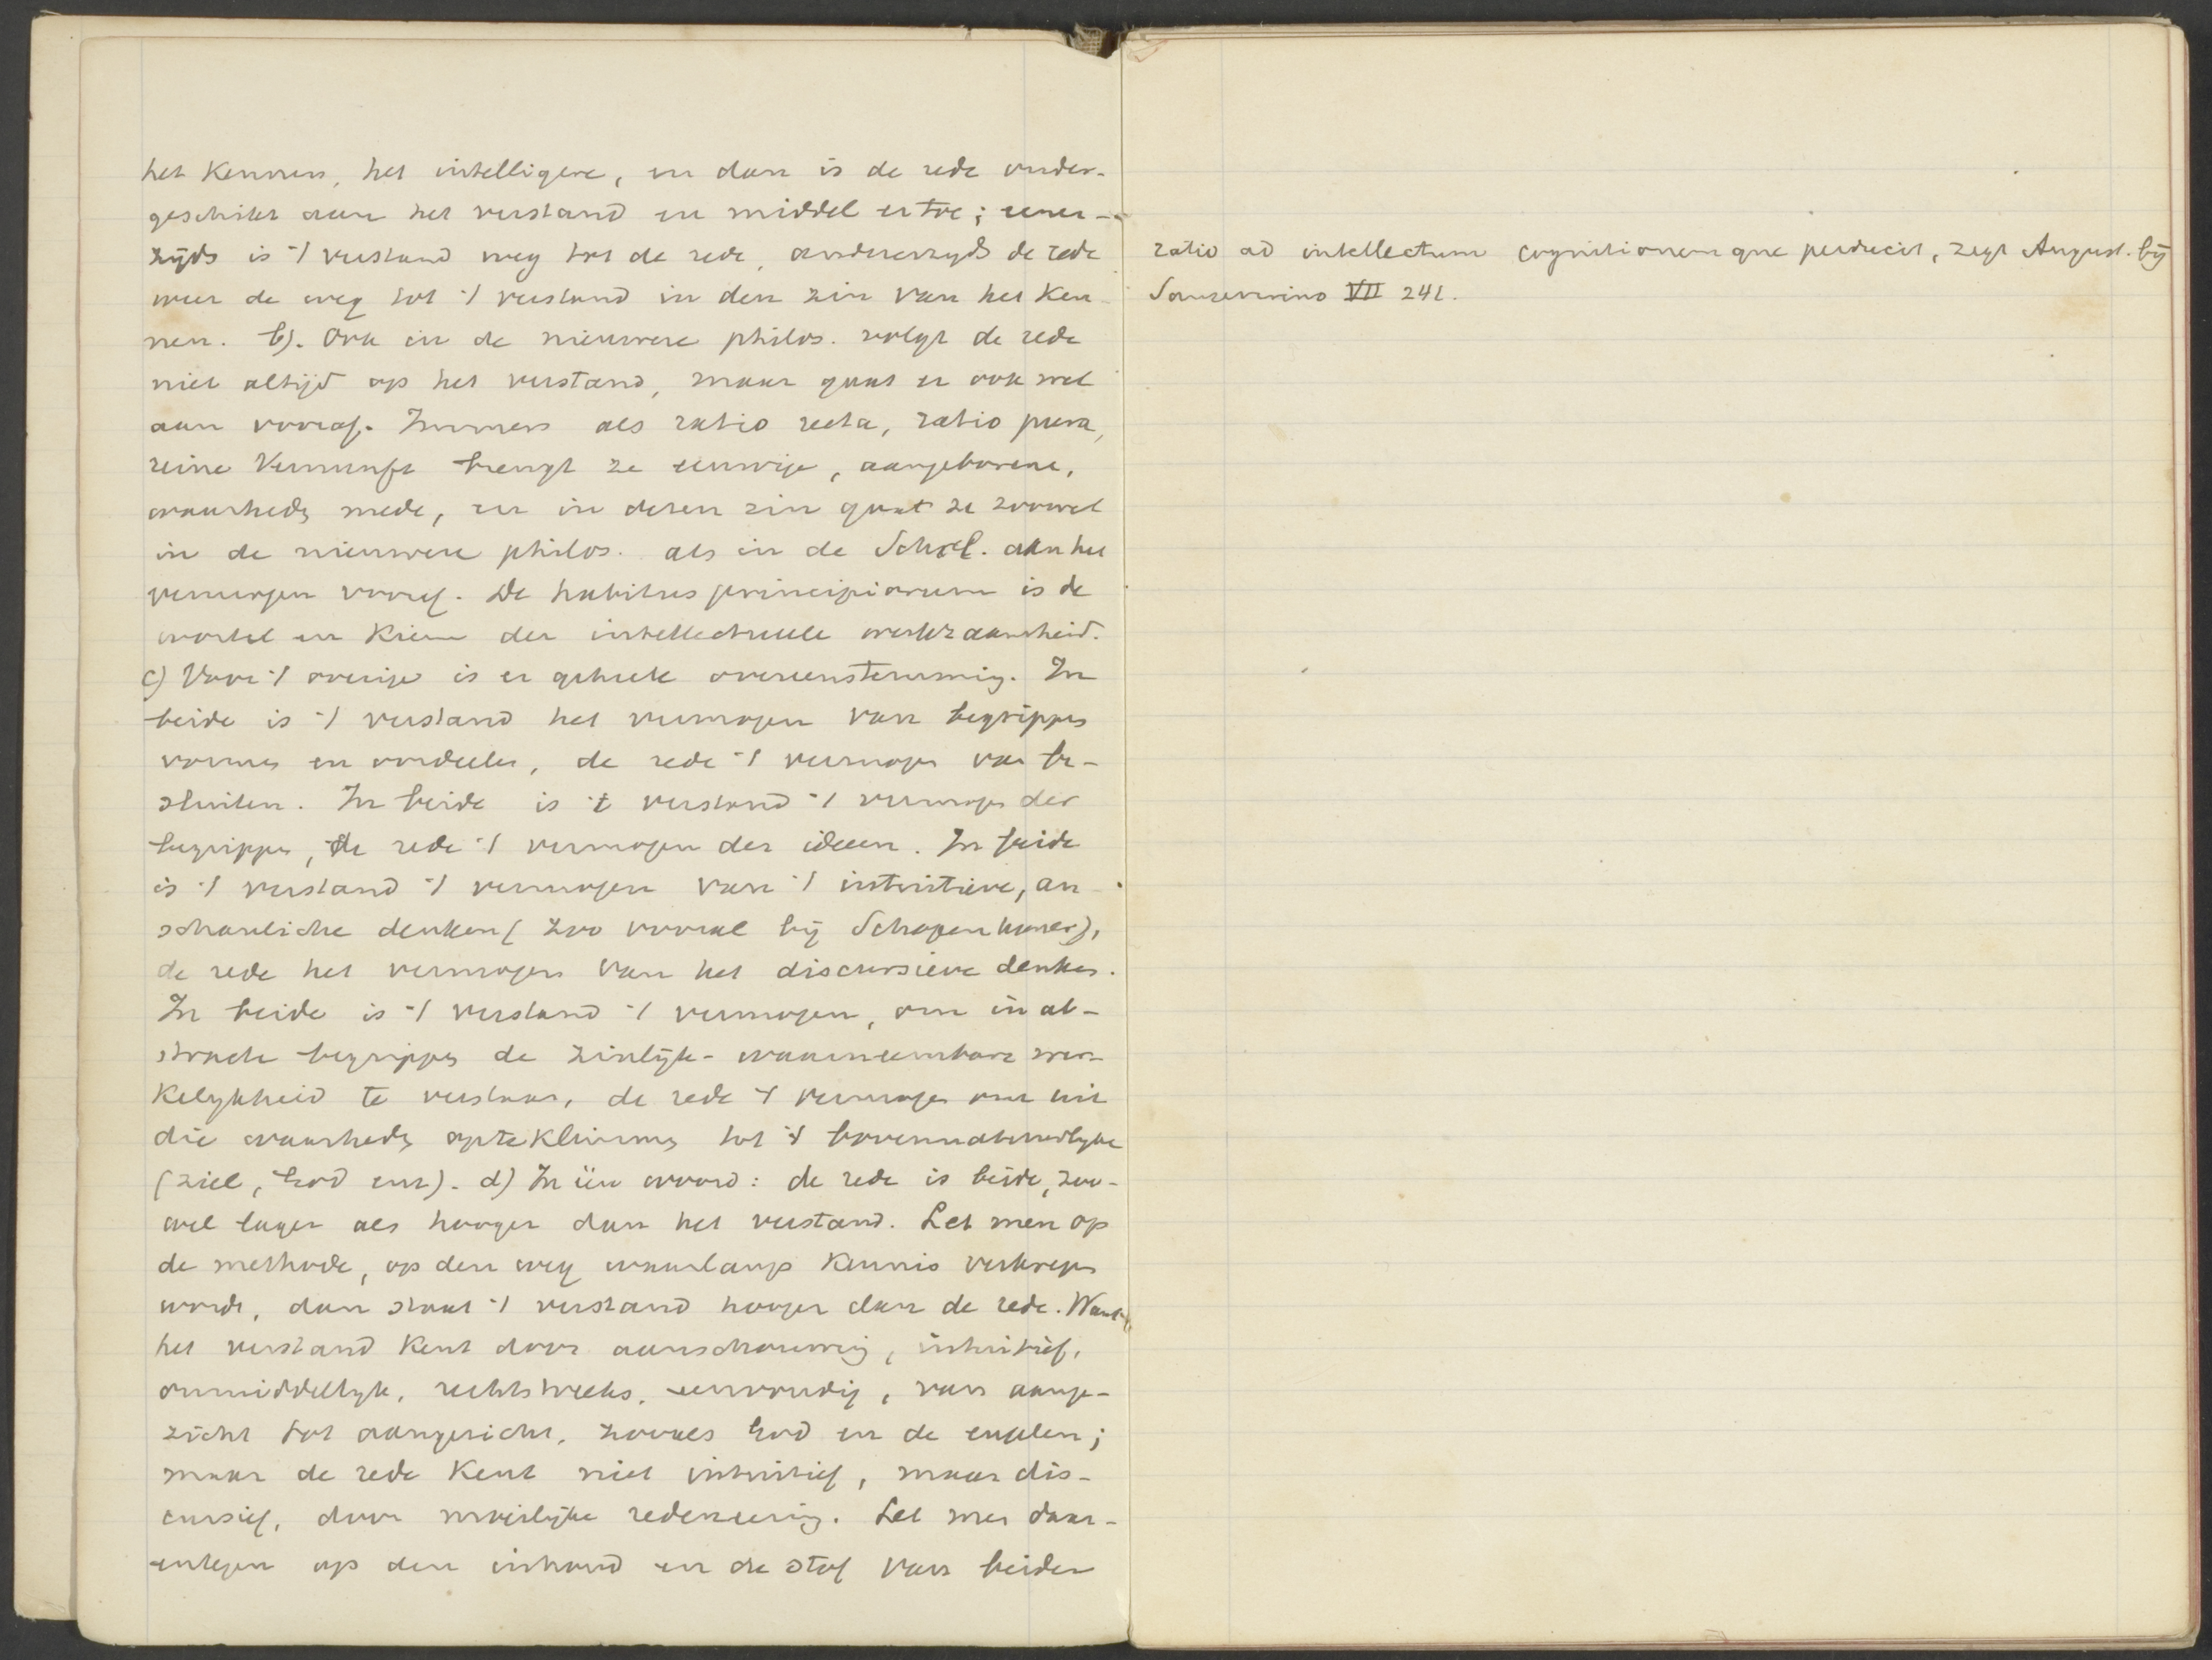 het Kennen, het intelligere, en dan is de rede onder-
geschikt aan het verstand en middel ertoe; eener-
zijds is 't verstand weg tot de rede, andererzyds de rede
weer de weg tot 't verstand in den zin van het Ken-
nen. b). Ook in de nieuwere philos. volgt de rede
niet altijd op het verstand, maar gaat er ook wel
aan vooraf. Immers als ratio recta, ratio pura,
reine Vernunft brengt ze eeuwige, aangeborene,
waarheden mede, en in dezen zin gaat ze zoowel
in de nieuwere philos. als in de Schol. aan het
vermogen vooraf. De habitus principiorum is de
wortel en Kiem der intellectueele werkzaamheid.
c) Voor 't overige is er geheele overeenstemming. In
beide is 't verstand het vermogen van begrippen
vormen en oordeelen, de rede 't vermogen van be-
sluiten. In beide is 't verstand 't vermogen der
begrippen, de rede 't vermogen der ideeen. In beide
is 't verstand 't vermogen van 't intuitieve, an-
schauliche denken (zoo vooral bij Schopenhauer),
de rede het vermogen van het discursieve denken.
In beide is 't verstand 't vermogen, om in ab-
stracte begrippen de zinlijk-waarneembare wer-
Kelykheid te verstaan, de rede 't vermogen om uit
die waarheden opteklimmen tot 't bovennatuurlyke
(ziel, God enz). d) In één woord: de rede is beide, zoo-
wel lager als hooger dan het verstand. Let men op
de methode, op den weg waarlangs Kennis verkregen
wordt, dan staat 't verstand hooger dan de rede. Want
het verstand Kent door aanschouwing, intuitief,
onmiddellyk, rechtstreeks, eenvoudig, van aange-
zicht tot aangezicht, zooals God en de engelen;
maar de rede Kent niet intuitief, maar dis-
cursief, door moeilijke redeneering. Let men daar-
entegen op den inhoud en de stof van beiden
ratio ad intellectum cognitionemque perducit, zegt August. bij
Sanseverino VII 241.